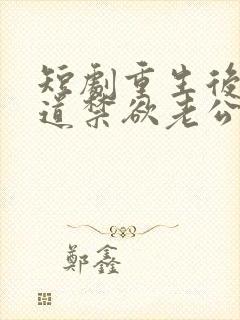 短劇重生後
道禁欲老公
鄭鑫